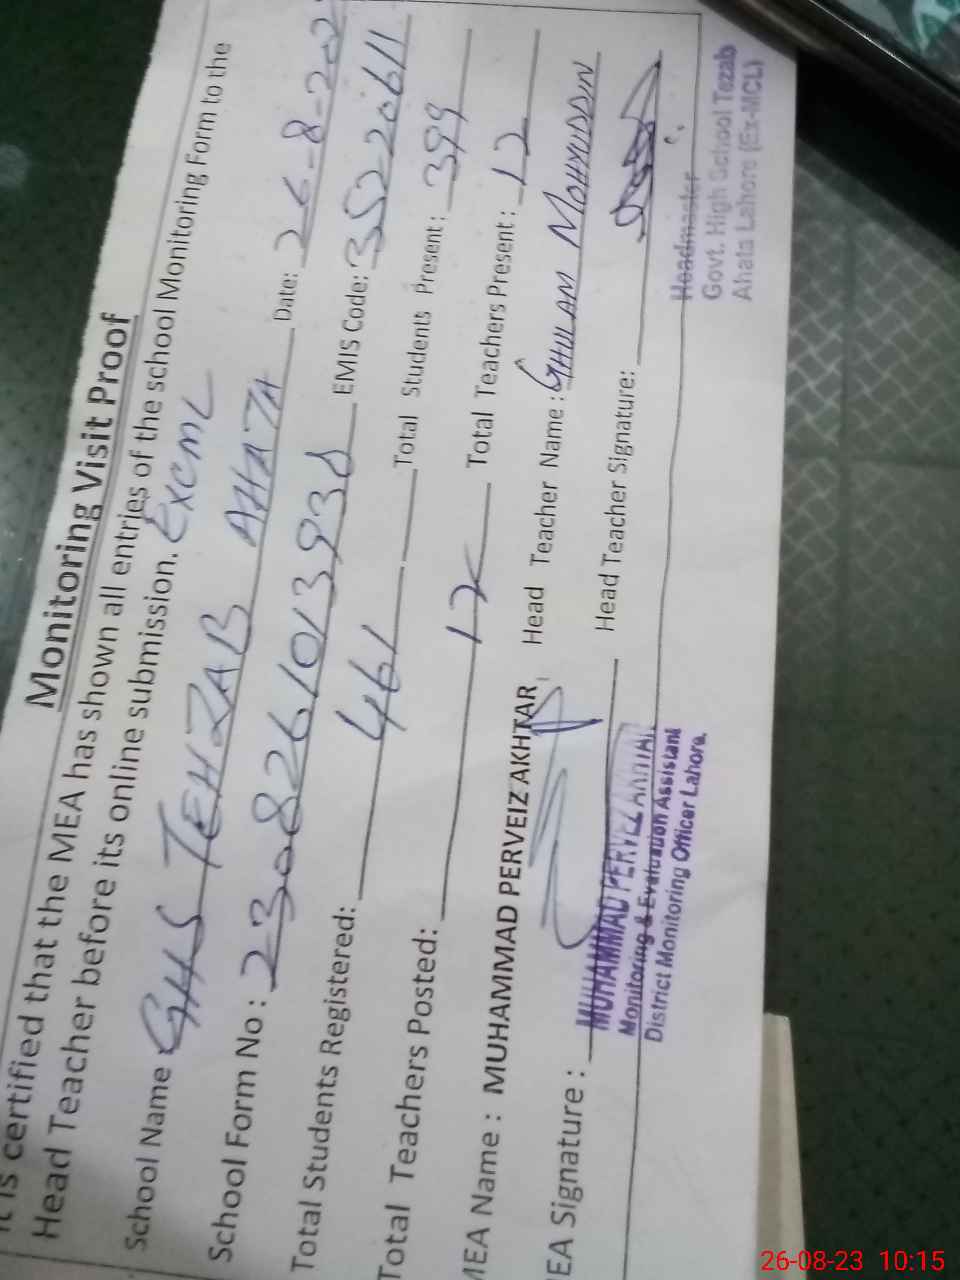 Monitoring Visit Proof
It is certified that the MEA has shown all entries of the school Monitoring Form to the
Head Teacher before its online submission. Excml
School Name GHS TEHZAB AHATA Date: 26-8-202
School Form No : 230826101393 EMIS Code: 35220611
Total Students Registered: 461 Total Students Present : 399
Total Teachers Posted: 12 Total Teachers Present : 12
MEA Name : MUHAMMAD PERVEIZ AKHTAR Head Teacher Name : GHULAM MOHYUDDIN
EA Signature : Head Teacher Signature:
MUHAMMAD PERVEZ AKHTAR
Monitoring & Evaluation Assistant
District Monitoring Officer Lahore.
Headmaster
Govt. High School Tezab
Ahata Lahore (Ex-MCL)
26-08-23 10:15